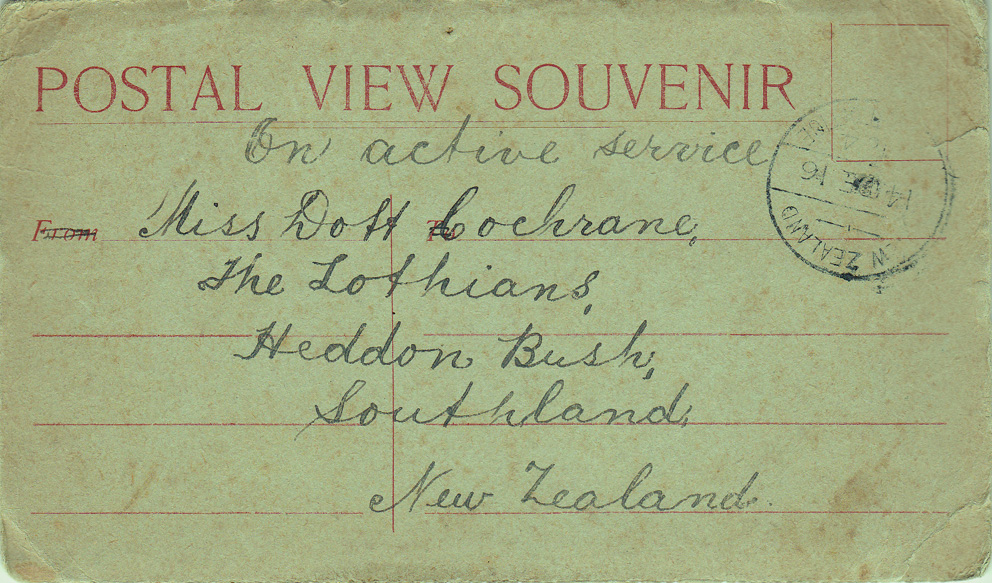 POSTAL VIEW SOUVENIR
On active service
From
To
Miss Dott Cochrane,
The Lothians,
Heddon Bush,
Southland,
New Zealand.
14 DE 16
ZEALAND